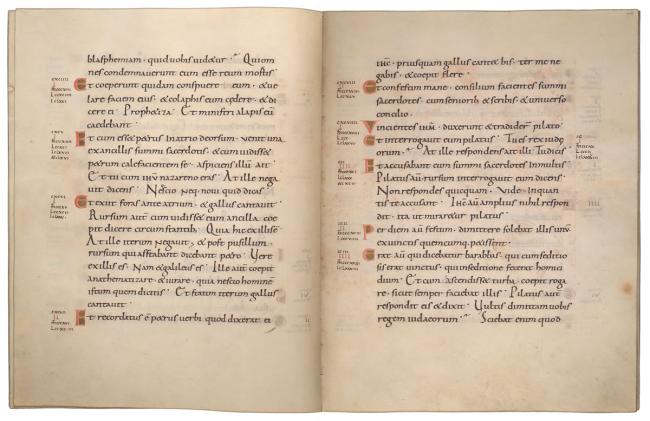 blasphemiam · quid uobis uidetur · Qui om
nes condemnauerunt eum esse reum mortis
Et coeperunt quidam conspuere eum · & ue
lare faciem eius · & colaphis eum cędere · & di
cere ei · Prophetiza · Et ministri alapis eū
caedebant
Et cum ess& petrus in atrio deorsum · uenit una
ex ancillis summi sacerdotis · & cum uidiss&
petrum calefacientem se · aspiciens illū ait
Et tu cum ihū nazareno eras · At ille nega
uit dicens · Neq; scio neq; noui quid dicas
Et exiit foras ante atrium · & gallus cantauit
Rursum autē cum uidiss& eum ancilla · coe
pit dicere circumstantib; Quia hic ex illis ē
At ille iterum negauit · & post pusillum
rursum qui astabant dicebant petro · Vere
ex illis es · Nam & galileus es · Ille autē coepit
anathematizare · & iurare · quia nescio hominē
istum quem dicitis · Et statim iterum gallus
cantauit
Et recordatus ē petrus uerbi quod dixerat ei
ihc · priusquam gallus cant& bis · ter me ne
gabis · & coepit flere
Et confestim mane · consilium facientes summi
sacerdotes · cum seniorib; & scribis · & uniuerso
concilio
Vincientes ihm · duxerunt & tradider̄ pilato
Et interrogauit eum pilatus · Tu es rex iudę
orum · At ille respondens ait illi · Tu dicis
Et accusabant eum summi sacerdotes in multis
Pilatus aū rursum interrogauit eum dicens
Non respondes quicquam · Vide in quan
tis te accusant · Ihc aū amplius nihil respon
dit · ita ut miraretur pilatus
Per diem aū festum · dimittere solebat illis unū
ex uinctis quemcumq; petissent
Erat aū qui dicebatur barabbas · qui cum seditio
sis erat uinctus · qui in seditione fecerat homici
dium · Et cum ascendiss& turba · coepit roga
re · sicut semper faciebat illis · Pilatus aut̄
respondit eis & dixit · Vultis dimittam uobis
regem iudaeorum · Sciebat enim quod